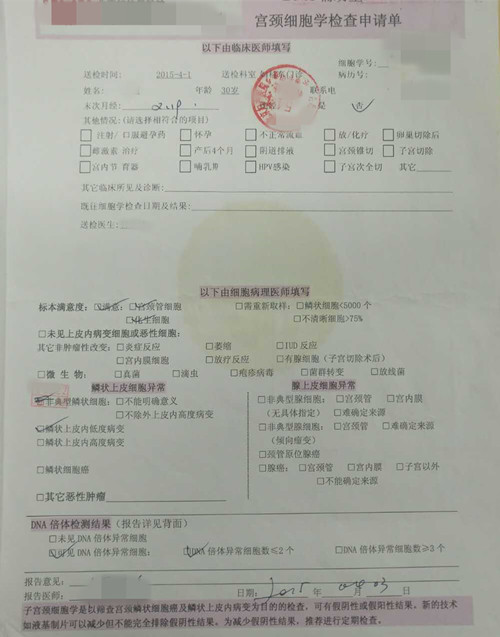 宫颈细胞学检查申请单
以下由临床医师填写
细胞学号:
送检时间: 2015-4-1 送检科室 门诊 病历号:
姓名: 年龄 30岁 联系电
末次月经: 是 否
其他情况:(请选择相符合的项目)
□注射/口服避孕药 □怀孕 □不正常流血 □放/化疗 □卵巢切除后
□雌激素治疗 □产后4个月 □阴道排液 □宫颈锥切 □子宫切除
□宫内节育器 □哺乳期 □HPV感染 □子宫次全切 其它
其它临床所见及诊断:
既往细胞学检查日期及结果:
送检医生:
以下由细胞病理医师填写
标本满意度: □满意: □宫颈管细胞 □需重新取样: □鳞状细胞<5000个
□化生细胞 □不清晰细胞>75%
□未见上皮内病变细胞或恶性细胞:
其它非肿瘤性改变: □炎症反应 □萎缩 □IUD反应
□宫内膜细胞 □放疗反应 □有腺细胞(子宫切除术后)
□微生物: □真菌 □滴虫 □疱疹病毒 □菌群转变 □放线菌
鳞状上皮细胞异常 腺上皮细胞异常
非典型鳞状细胞: □不能明确意义 □非典型腺细胞: □宫颈管 □宫内膜
□不除外上皮内高度病变 (无具体指定) □难确定来源
□鳞状上皮内低度病变 □非典型腺细胞: □宫颈管 □难确定来源
□鳞状上皮内高度病变 (倾向瘤变)
□颈管原位腺癌
□鳞状细胞癌 □腺癌: □宫颈管 □宫内膜 □子宫以外
□不能确定来源
□其它恶性肿瘤
DNA倍体检测结果(报告详见背面)
□未见DNA倍体异常细胞
□可见DNA倍体异常细胞: □DNA倍体异常细胞数≤2个 □DNA倍体异常细胞数≥3个
报告意见:
报告医师: 日期: 2015 年 04 月 03 日
子宫颈细胞学是以筛查宫颈鳞状细胞癌及鳞状上皮内病变为目的的检查,可有假阴性或假阳性结果。新的技术
如液基制片可以减少但不能完全排除假阴性结果。为减少假阴性结果,推荐进行定期检查。